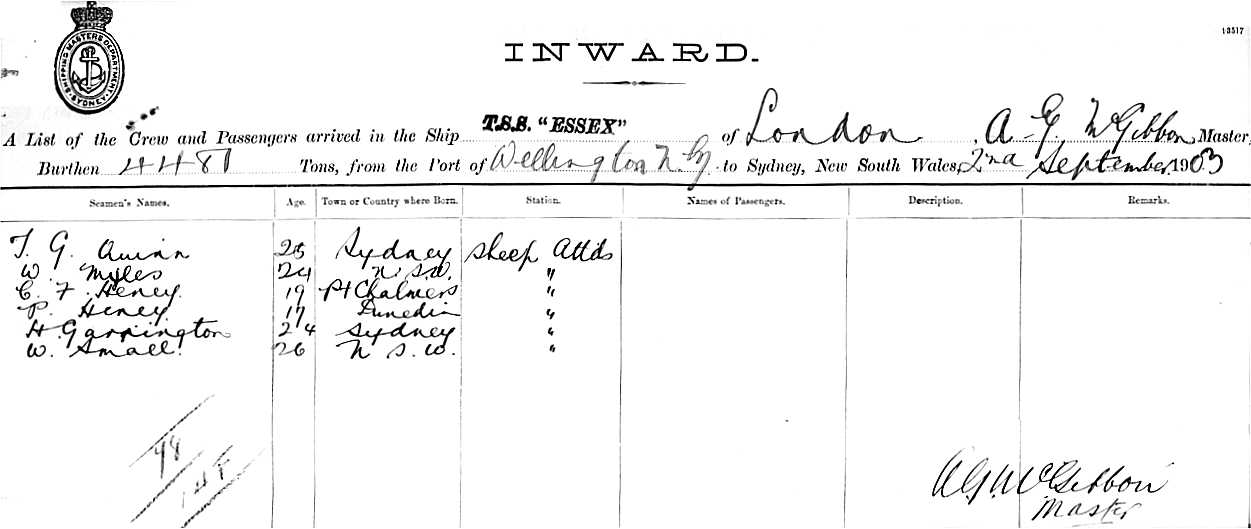 SHIPPING MASTERS DEPARTMENT. SYDNEY.
13517
INWARD.
A List of the Crew and Passengers arrived in the Ship T.S.S. "ESSEX" of London A. G. McGibbon, Master,
Burthen 4481 Tons, from the Port of Wellington N.Z. to Sydney, New South Wales, 2nd September 1903
Seamen's Names. Age. Town or Country where Born. Station. Names of Passengers. Description. Remarks.
T. G. Quinn Sydney Sheep Attds
W. Myles 24 N.S.W. "
C. F. Heney. 19 Pt Chalmers "
P. Heney. 17 Dunedin "
H. Garrington 24 Sydney "
W. Small. 26 N S.W. "
98
148
A G McGibbon
Master